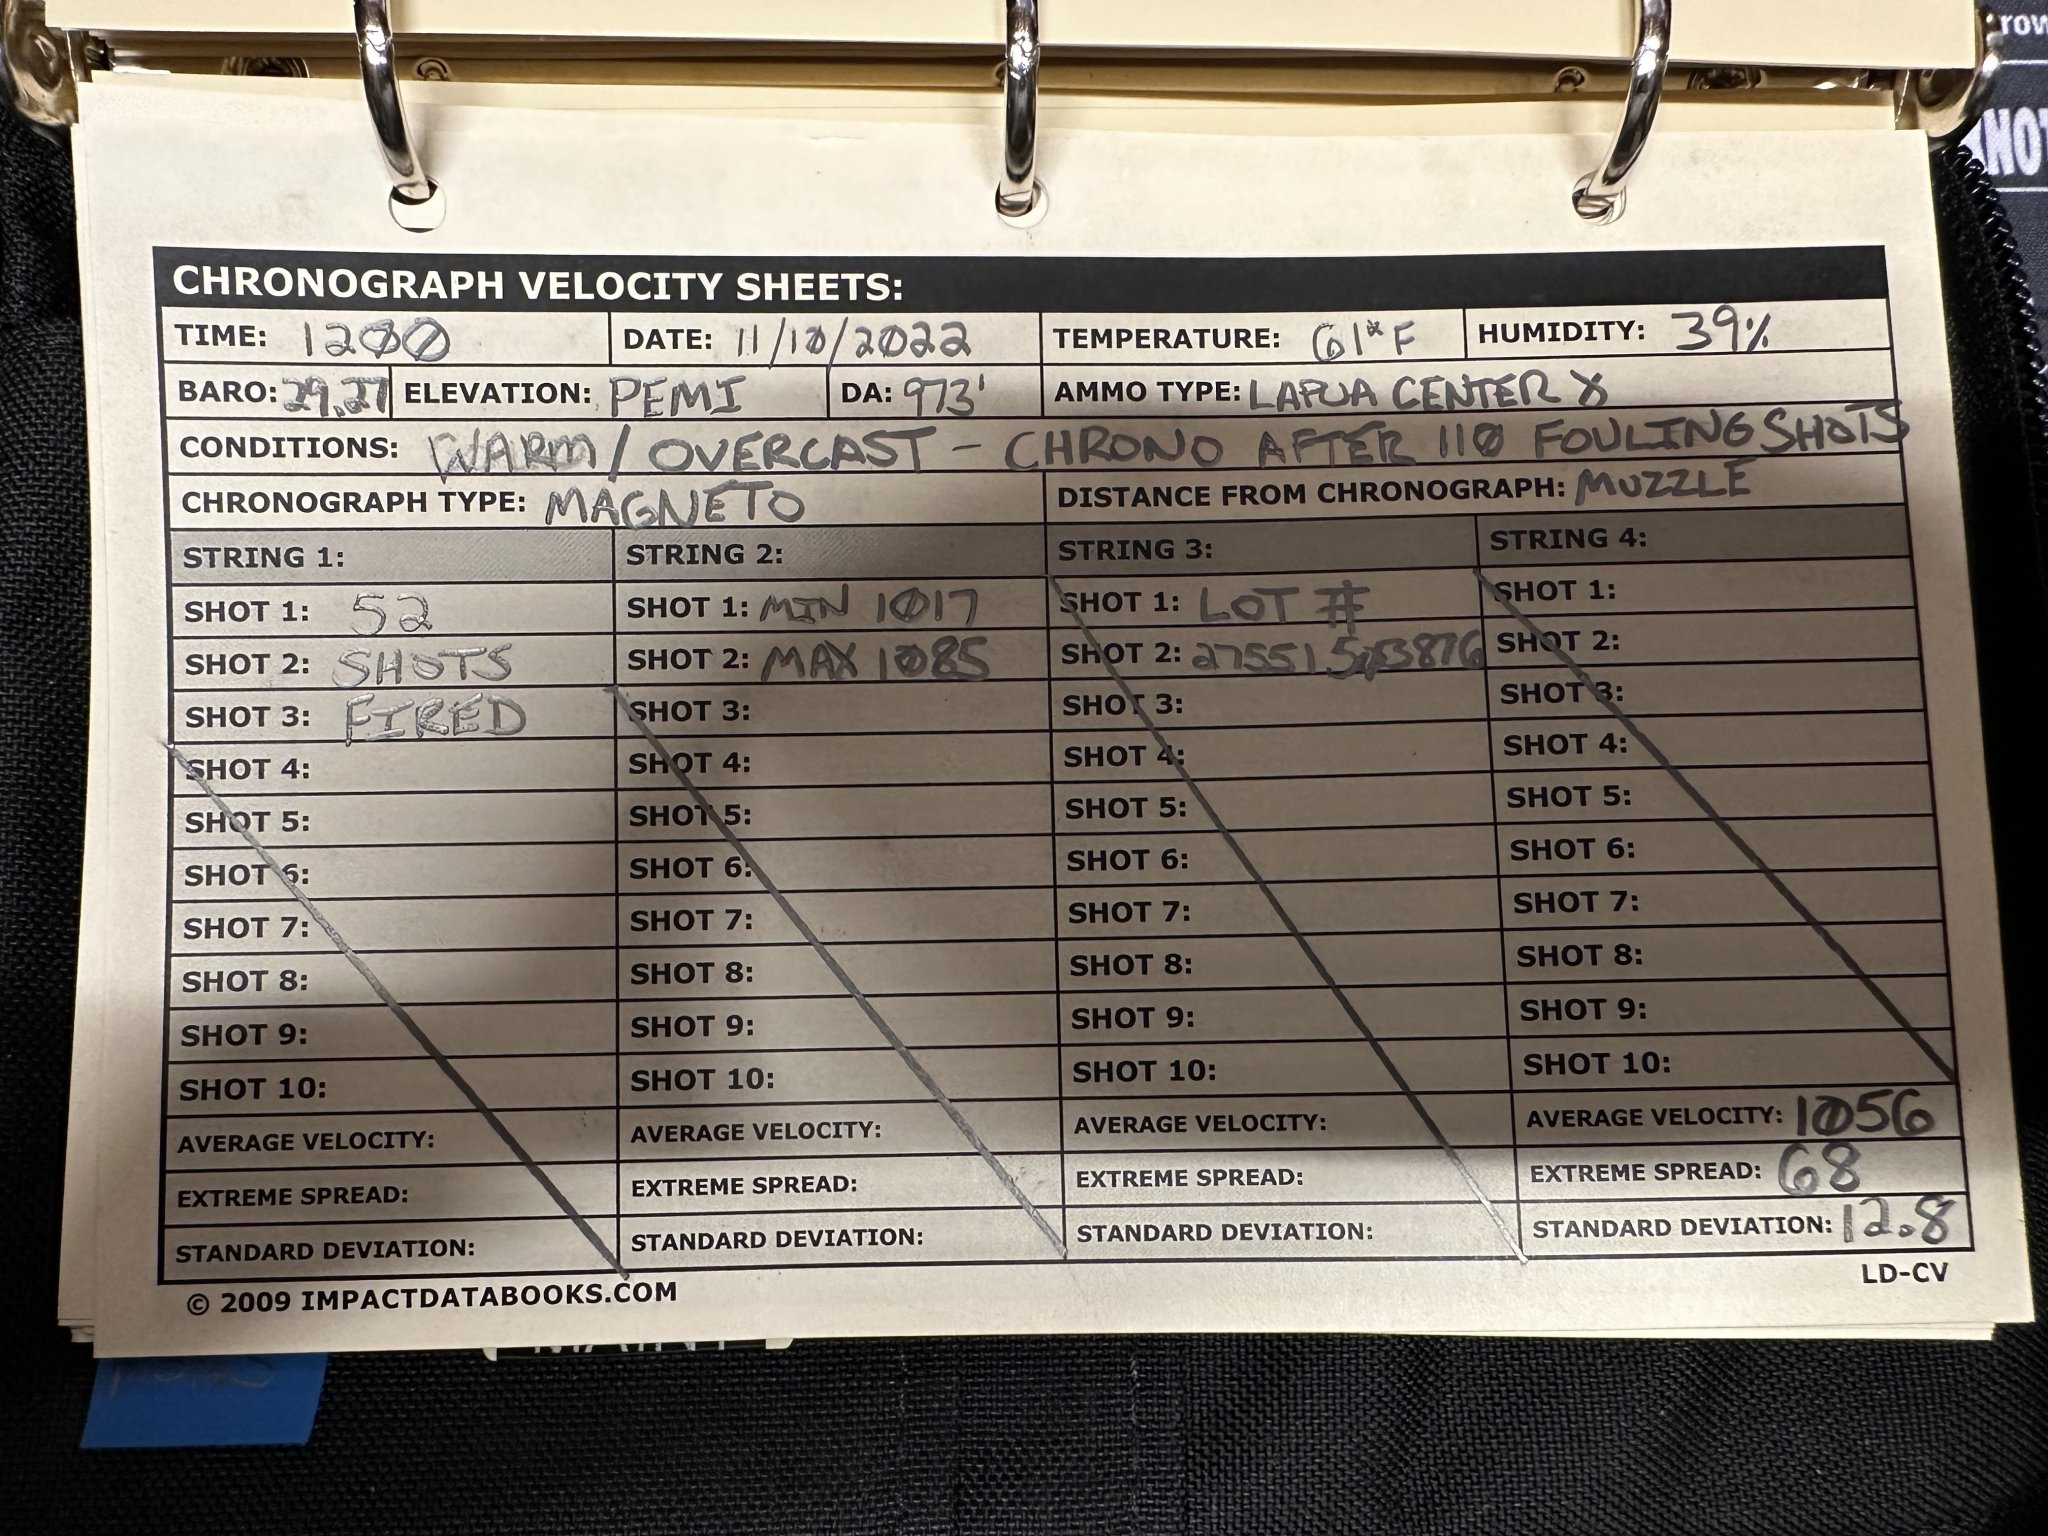 CHRONOGRAPH VELOCITY SHEETS:
TIME: 1200 DATE: 11/10/2022 TEMPERATURE: 61°F HUMIDITY: 39%
BARO: 29.27 ELEVATION: PEMI DA: 973' AMMO TYPE: LAPUA CENTER X
CONDITIONS: WARM / OVERCAST - CHRONO AFTER 110 FOULING SHOTS
CHRONOGRAPH TYPE: MAGNETO DISTANCE FROM CHRONOGRAPH: MUZZLE
STRING 1: STRING 2: STRING 3: STRING 4:
SHOT 1: 52 SHOT 1: MIN 1017 SHOT 1: LOT # SHOT 1:
SHOT 2: SHOTS SHOT 2: MAX 1085 SHOT 2: SHOT 2:
SHOT 3: FIRED SHOT 3: SHOT 3: SHOT 3:
SHOT 4: SHOT 4: SHOT 4: SHOT 4:
SHOT 5: SHOT 5: SHOT 5: SHOT 5:
SHOT 6: SHOT 6: SHOT 6: SHOT 6:
SHOT 7: SHOT 7: SHOT 7: SHOT 7:
SHOT 8: SHOT 8: SHOT 8: SHOT 8:
SHOT 9: SHOT 9: SHOT 9: SHOT 9:
SHOT 10: SHOT 10: SHOT 10: SHOT 10:
AVERAGE VELOCITY: AVERAGE VELOCITY: AVERAGE VELOCITY: AVERAGE VELOCITY: 1056
EXTREME SPREAD: EXTREME SPREAD: EXTREME SPREAD: EXTREME SPREAD: 68
STANDARD DEVIATION: STANDARD DEVIATION: STANDARD DEVIATION: STANDARD DEVIATION: 12.8
© 2009 IMPACTDATABOOKS.COM LD-CV